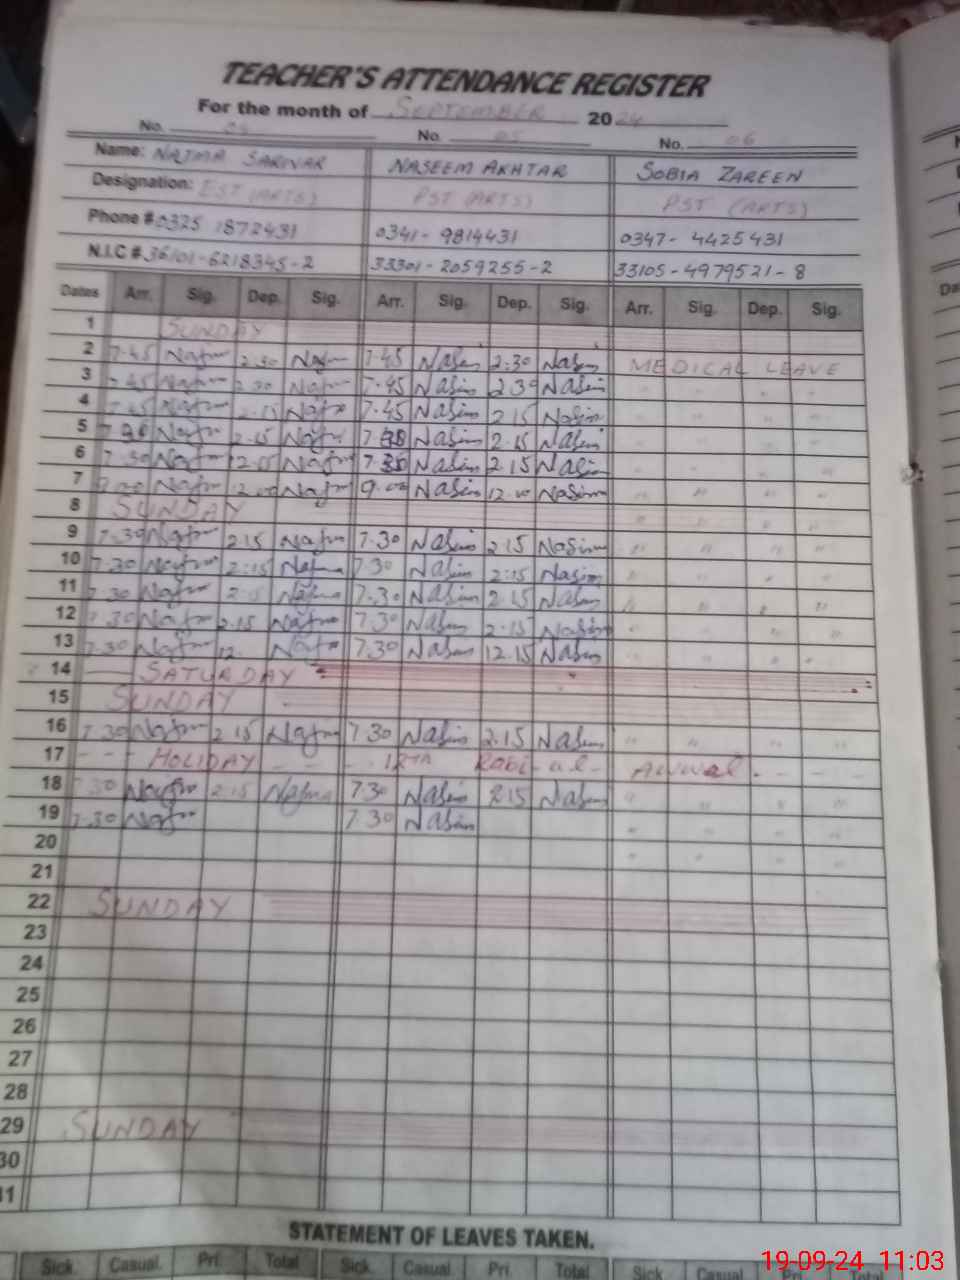 TEACHER'S ATTENDANCE REGISTER
For the month of SEPTEMBER 2024
No. No. 05 No. 06
Name: NAJMA SARWAR NASEEM AKHTAR SOBIA ZAREEN
Designation: EST (ARTS) PST (ARTS) PST (ARTS)
Phone # 0325 1872431 0341- 9814431 0347- 4425431
N.I.C # 36101-6218345-2 33301-2059255-2 33105-4979521-8
Dates Arr. Sig. Dep. Sig. Arr. Sig. Dep. Sig. Arr. Sig. Dep. Sig.
1 SUNDAY
2 7.45 Najm 2.30 Najm 7.45 Nasim 2:30 Nasim MEDICAL LEAVE
3 7.45 Najm 2.30 Najm 7.45 Nasim 2.30 Nasim " " " "
4 7.45 Najm 2.15 Najm 7.45 Nasim 2.15 Nasim " " " "
5 Najm 2.15 Najm Nasim 2.15 Nasim " " " "
6 7.30 Najm 12.05 Najm 7.30 Nasim 2.15 Nasim " " " "
7 9.00 Najm 12.00 Najm 9.00 Nasim 12.00 Nasim " " " "
8 SUNDAY " " " "
9 7.30 Najm 2.15 Najm 7.30 Nasim 2.15 Nasim " " " "
10 7.30 Najm 2:15 Najma 7.30 Nasim 2:15 Nasim " " " "
11 7.30 Najm 2.15 Najma 7.30 Nasim 2.15 Nasim " " " "
12 7.30 Najm 2.15 Najm 7.30 Nasim 2.15 Nasim " " " "
13 7.30 Najm 12. Najm 7.30 Nasim 12.15 Nasim " " " "
14 SATURDAY
15 SUNDAY
16 7.30 Najm 2.15 Najm 7.30 Nasim 2.15 Nasim " " " "
17 - - - HOLIDAY - - - 12TH Rabi-ul- Awwal - - - -
18 7.30 Najm 2.15 Najma 7.30 Nasim 2.15 Nasim " " " "
19 7.30 Najm 7.30 Nasim " " " "
20 " " " "
21
22 SUNDAY
23
24
25
26
27
28
29 SUNDAY
30
31
STATEMENT OF LEAVES TAKEN.
Sick. Casual. Pri. Total Sick. Casual. Pri. Total Sick. Casual. Pri. Total
19-09-24 11:03